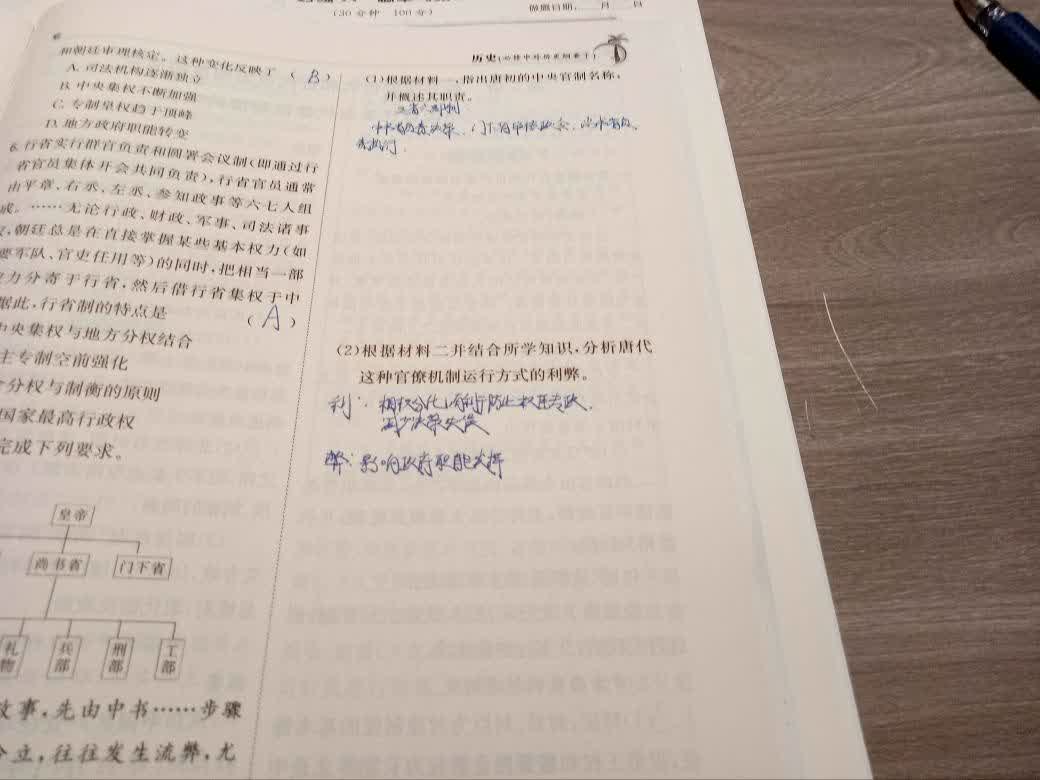 (30分钟 100分)
做题日期: 月 日
6
历史(必修中外历史纲要上)
和朝廷审理核定。这种变化反映了 (B)
A. 司法机构逐渐独立
B. 中央集权不断加强
C. 专制皇权趋于顶峰
D. 地方政府职能转变
6. 行省实行群官负责和圆署会议制(即通过行
省官员集体开会共同负责),行省官员通常
由平章、右丞、左丞、参知政事等六七人组
成。……无论行政、财政、军事、司法诸事
,朝廷总是在直接掌握某些基本权力(如
要军队、官吏任用等)的同时,把相当一部
力分寄于行省,然后借行省集权于中
据此,行省制的特点是 (A)
中央集权与地方分权结合
主专制空前强化
分权与制衡的原则
国家最高行政权
完成下列要求。
皇帝
尚书省 门下省
礼部 兵部 刑部 工部
故事,先由中书……步骤
分立,往往发生流弊,尤
(1)根据材料一,指出唐初的中央官制名称,
并概述其职责。
三省六部制
中书省负责决策、门下省审核政令、尚书省负
责执行
(2)根据材料二并结合所学知识,分析唐代
这种官僚机制运行方式的利弊。
利:相权分化,有利于防止权臣专政,
减少决策失误
弊:影响政府职能发挥